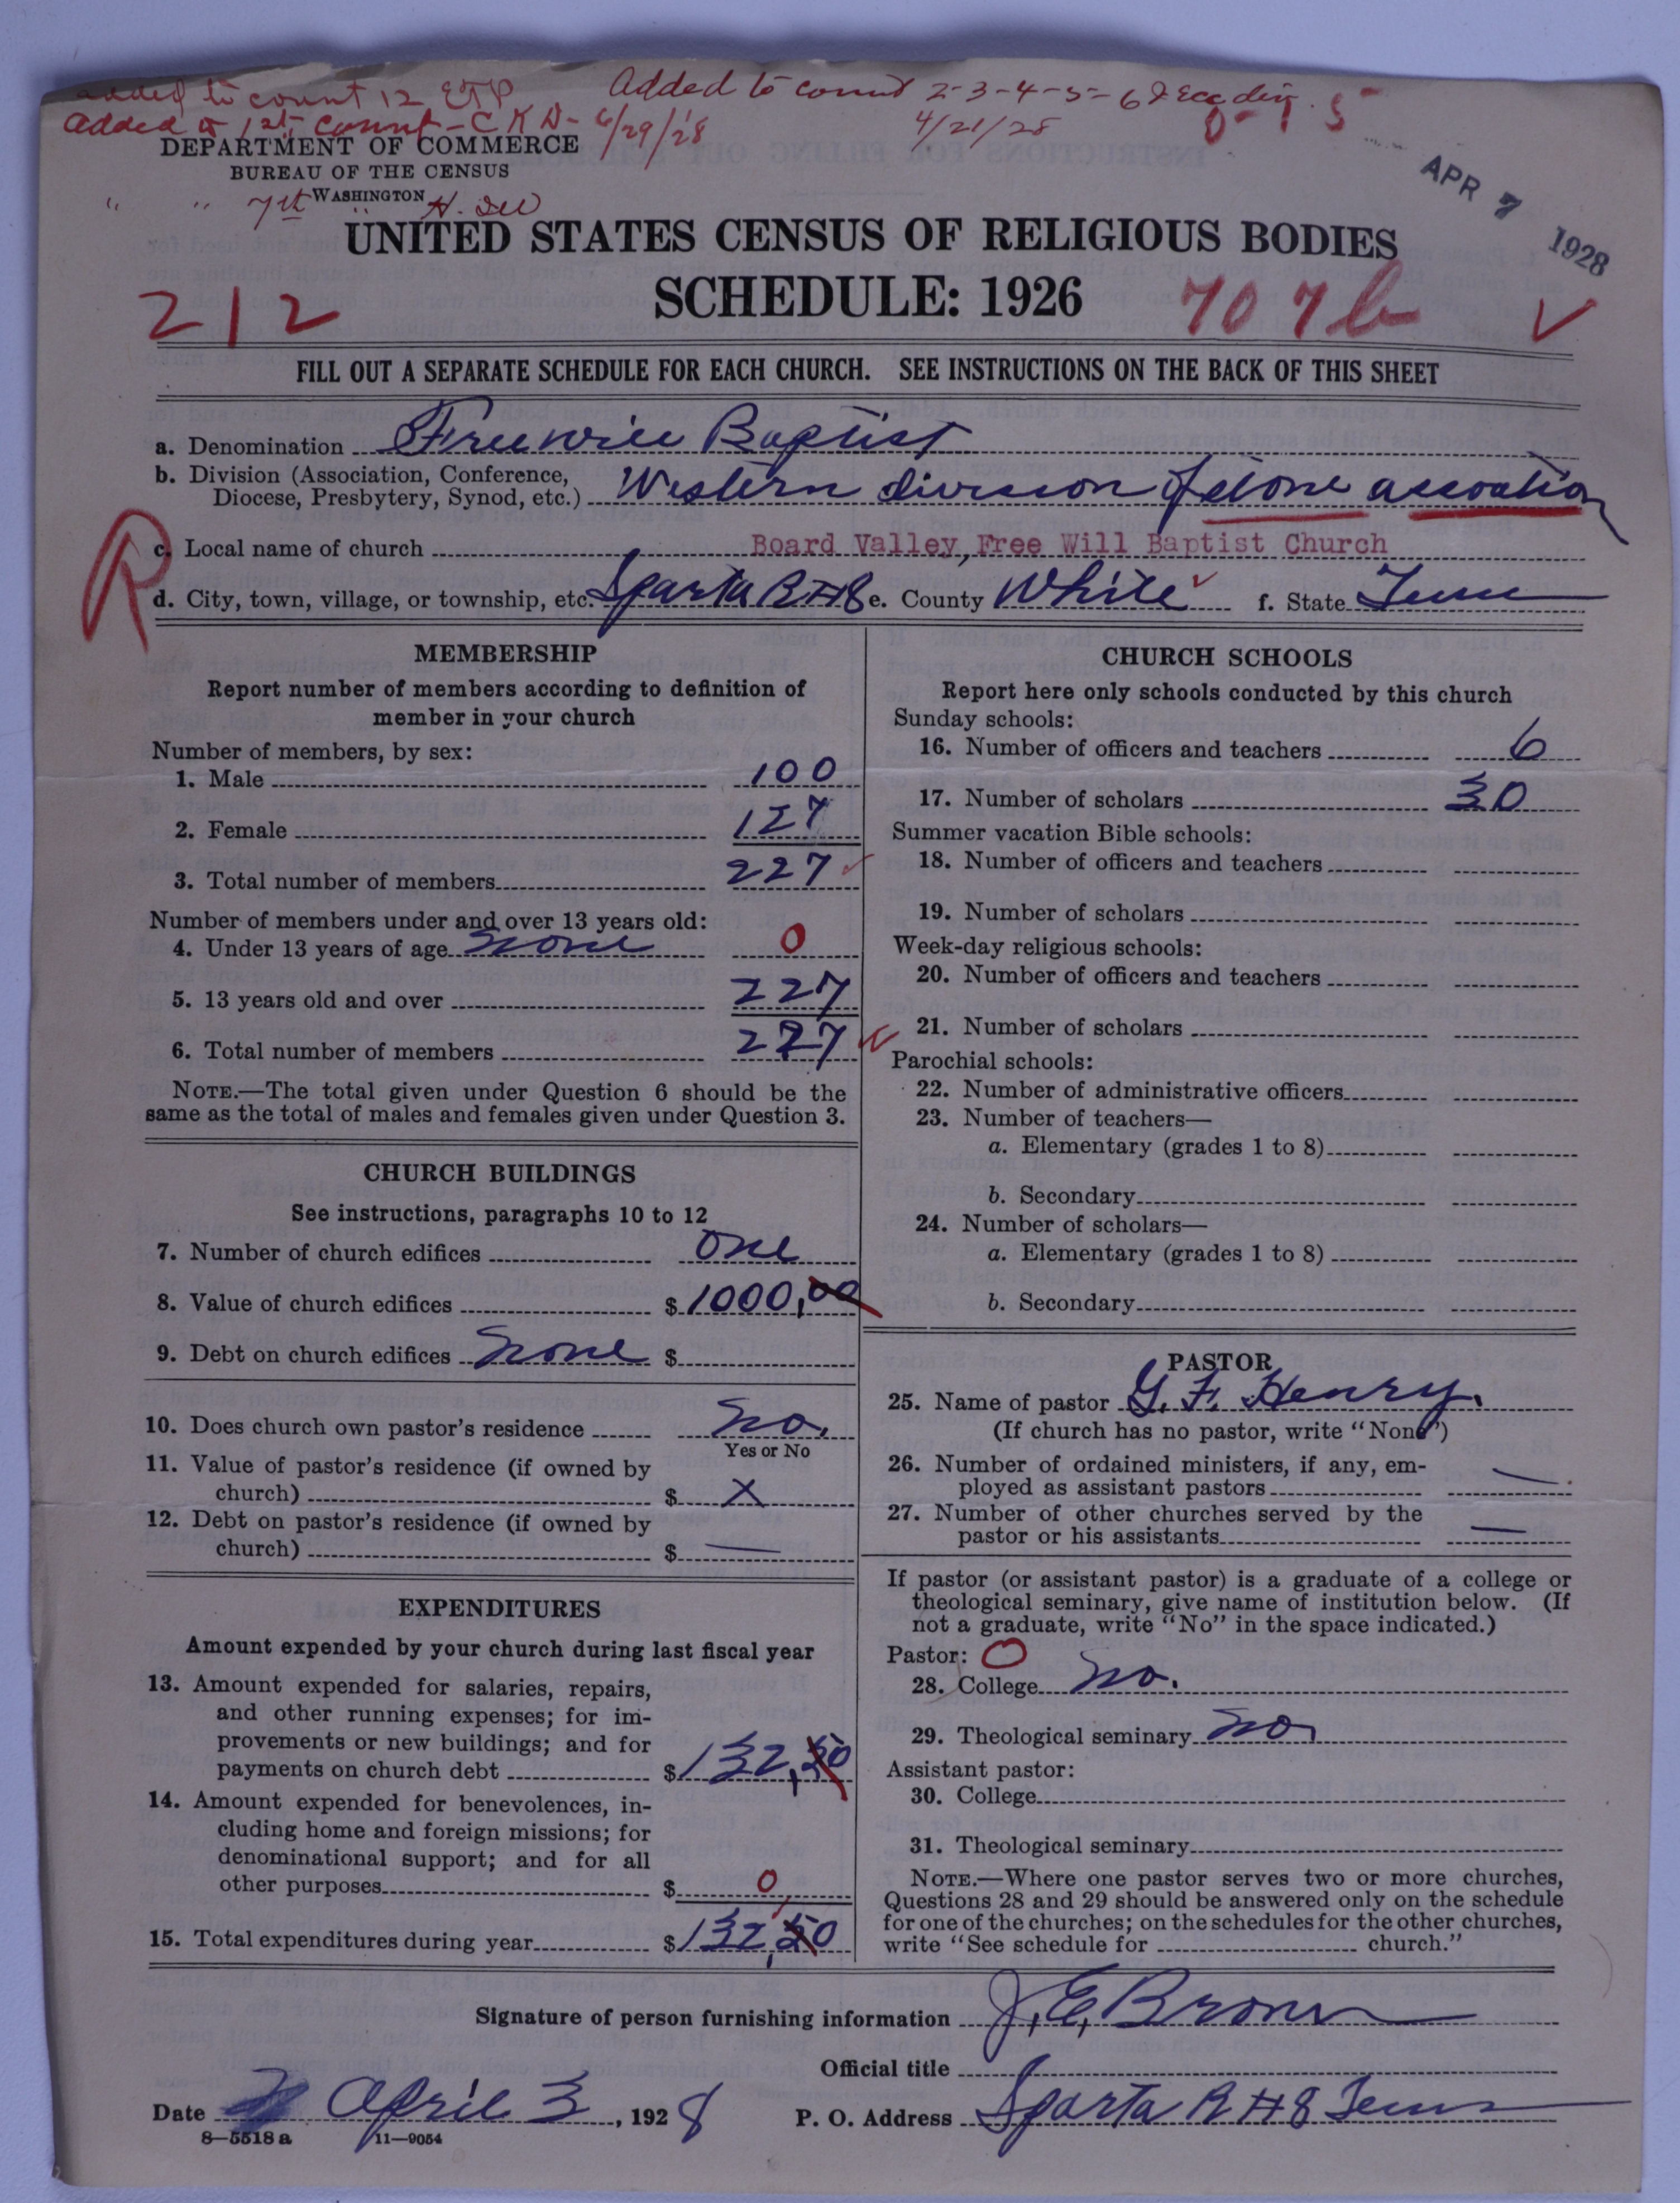 added to count 12 ETP
Added to count 2-3-4-5-6
Added to 1st count - C K D - 6/29/28
4/21/28
DEPARTMENT OF COMMERCE
BUREAU OF THE CENSUS
WASHINGTON
" " 7th
APR 7 1928
UNITED STATES CENSUS OF RELIGIOUS BODIES
SCHEDULE: 1926
212
707b
FILL OUT A SEPARATE SCHEDULE FOR EACH CHURCH. SEE INSTRUCTIONS ON THE BACK OF THIS SHEET
a. Denomination Freewill Baptist
b. Division (Association, Conference,
Diocese, Presbytery, Synod, etc.) Western division of stone assoation
R
c. Local name of church Board Valley, Free Will Baptist Church
d. City, town, village, or township, etc. Sparta R#8 e. County White f. State Tenn
MEMBERSHIP
Report number of members according to definition of
member in your church
Number of members, by sex:
1. Male 100
2. Female 127
3. Total number of members 227
Number of members under and over 13 years old:
4. Under 13 years of age none 0
5. 13 years old and over 227
6. Total number of members 227
NOTE.—The total given under Question 6 should be the
same as the total of males and females given under Question 3.
CHURCH BUILDINGS
See instructions, paragraphs 10 to 12
7. Number of church edifices one
8. Value of church edifices $ 1000,00
9. Debt on church edifices none $
10. Does church own pastor's residence no.
Yes or No
11. Value of pastor's residence (if owned by
church) $ X
12. Debt on pastor's residence (if owned by
church) $ —
EXPENDITURES
Amount expended by your church during last fiscal year
13. Amount expended for salaries, repairs,
and other running expenses; for im-
provements or new buildings; and for
payments on church debt $ 132,50
14. Amount expended for benevolences, in-
cluding home and foreign missions; for
denominational support; and for all
other purposes $ 0
15. Total expenditures during year $ 132,50
CHURCH SCHOOLS
Report here only schools conducted by this church
Sunday schools:
16. Number of officers and teachers 6
17. Number of scholars 30
Summer vacation Bible schools:
18. Number of officers and teachers
19. Number of scholars
Week-day religious schools:
20. Number of officers and teachers
21. Number of scholars
Parochial schools:
22. Number of administrative officers
23. Number of teachers—
a. Elementary (grades 1 to 8)
b. Secondary
24. Number of scholars—
a. Elementary (grades 1 to 8)
b. Secondary
PASTOR
25. Name of pastor G. F. Henry.
(If church has no pastor, write "None")
26. Number of ordained ministers, if any, em-
ployed as assistant pastors —
27. Number of other churches served by the
pastor or his assistants —
If pastor (or assistant pastor) is a graduate of a college or
theological seminary, give name of institution below. (If
not a graduate, write "No" in the space indicated.)
Pastor: 0
28. College no.
29. Theological seminary no
Assistant pastor:
30. College
31. Theological seminary
NOTE.—Where one pastor serves two or more churches,
Questions 28 and 29 should be answered only on the schedule
for one of the churches; on the schedules for the other churches,
write "See schedule for church."
Signature of person furnishing information J. E. Brown
Official title
Date April 3, 1928 P. O. Address Sparta R#8 Tenn
8—5518a 11—9054